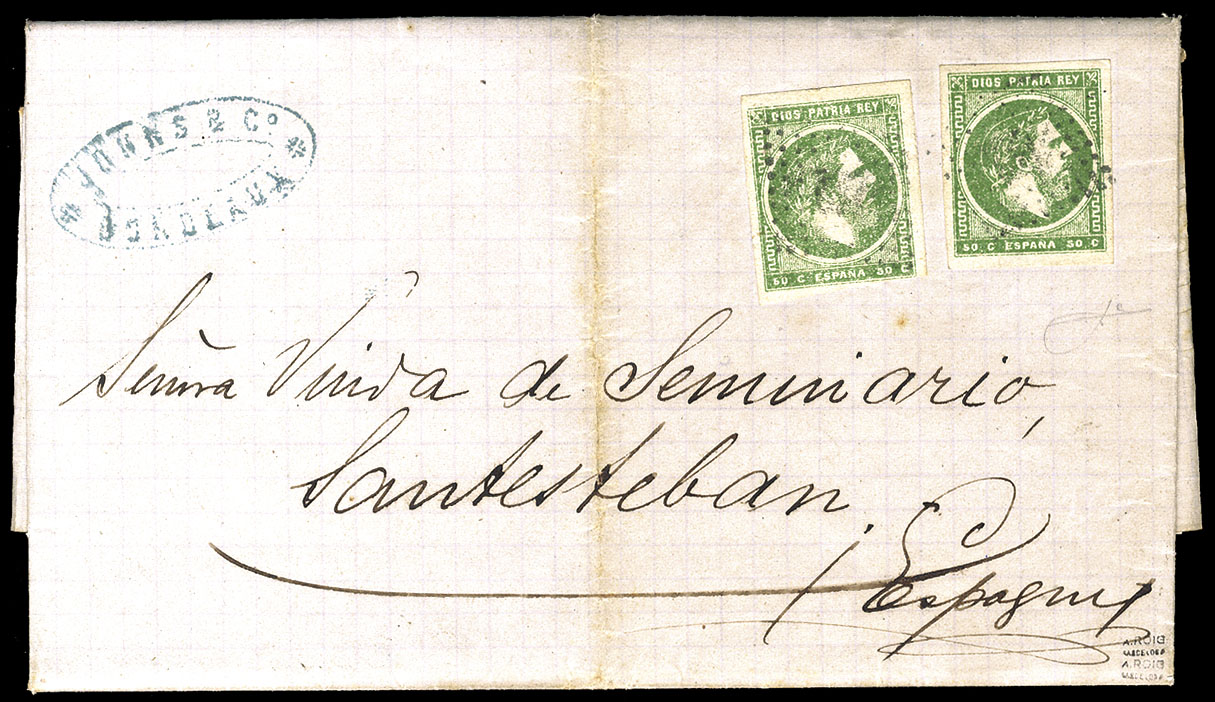 & Co
BORDEAUX
DIOS PATRIA REY
50 C ESPAÑA 50 C
DIOS PATRIA REY
50 C ESPAÑA 50 C
Señora Viuda de Seminario,
Santesteban.
Espagne
A.ROIG
BARCELONA
A.ROIG
BARCELONA